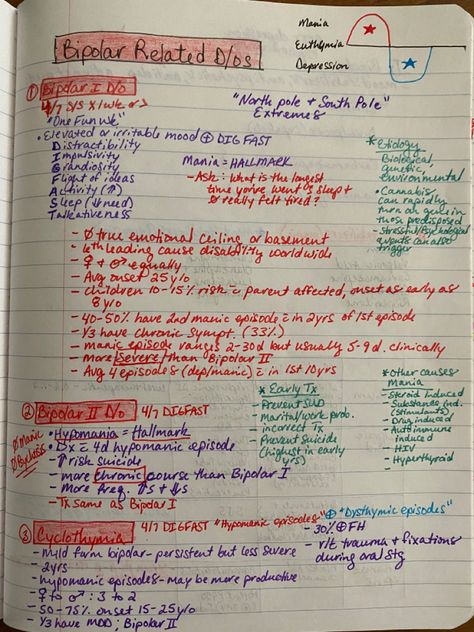 Bipolar Related D/os
Mania
Euthymia
Depression
① Bipolar I D/o
4/7 S/S x 1 wk or >
"One Fun wk"
"North pole + South Pole"
Extremes
• Elevated or irritable mood ⊕ DIGFAST
Distractibility
Impulsivity
Grandiosity
Flight of ideas
Activity (↑)
Sleep (↓ need)
Talkativeness
Mania = HALLMARK
- Ask: What is the longest
time you've went s sleep +
Ø really felt tired?
* Etiology
Biological,
genetic,
environmental
• Cannabis
can rapidly
turn on gene in
those predisposed
• Stressful/Psychological
events can also
trigger
- Ø true emotional ceiling or basement
- 6th leading cause disability worldwide
- ♀ + ♂ equally
- Avg onset 25 y/o
- children 10-15% risk c̄ parent affected, onset as early as
8 y/o
- 40-50% have 2nd manic episode c̄ in 2yrs of 1st episode
- 1/3 have chronic sympt. (33%)
- manic episode ranges 2-30d but usually 5-9 d. clinically
- More severe than Bipolar II
- Avg 4 episodes (dep/manic) c̄ in 1st 10yrs
* Early Tx
- Prevent SUD
- Marital/work prob.
- incorrect Tx
- Prevent Suicide
(highest in early
yrs)
* Other causes
Mania
- Steroid Induced
- Substance ind.
(Stimulants)
- Drug induced
- Autoimmune
induced
- HIV
- Hyperthyroid
② Bipolar II D/o 4/7 DIGFAST
Ø Manic
Ø Psychosis
• Hypomania = Hallmark
• Dx c̄ 4d hypomanic episode
- ↑ risk suicide
- more chronic course than Bipolar I
- More freq. ↑s + ↓s
- Tx same as Bipolar I
③ Cyclothymia 4/7 DIGFAST "Hypomanic episodes" ⊕ "Dysthymic episodes"
- Mild form bipolar - persistent but less severe
- 2yrs
- hypomanic episodes - may be more productive
- ♀ to ♂ : 3 to 2
- 50-75% onset 15-25 y/o
- 1/3 have MDD; Bipolar II
- 30% ⊕ FH
- r/t trauma + fixations
during oral stg